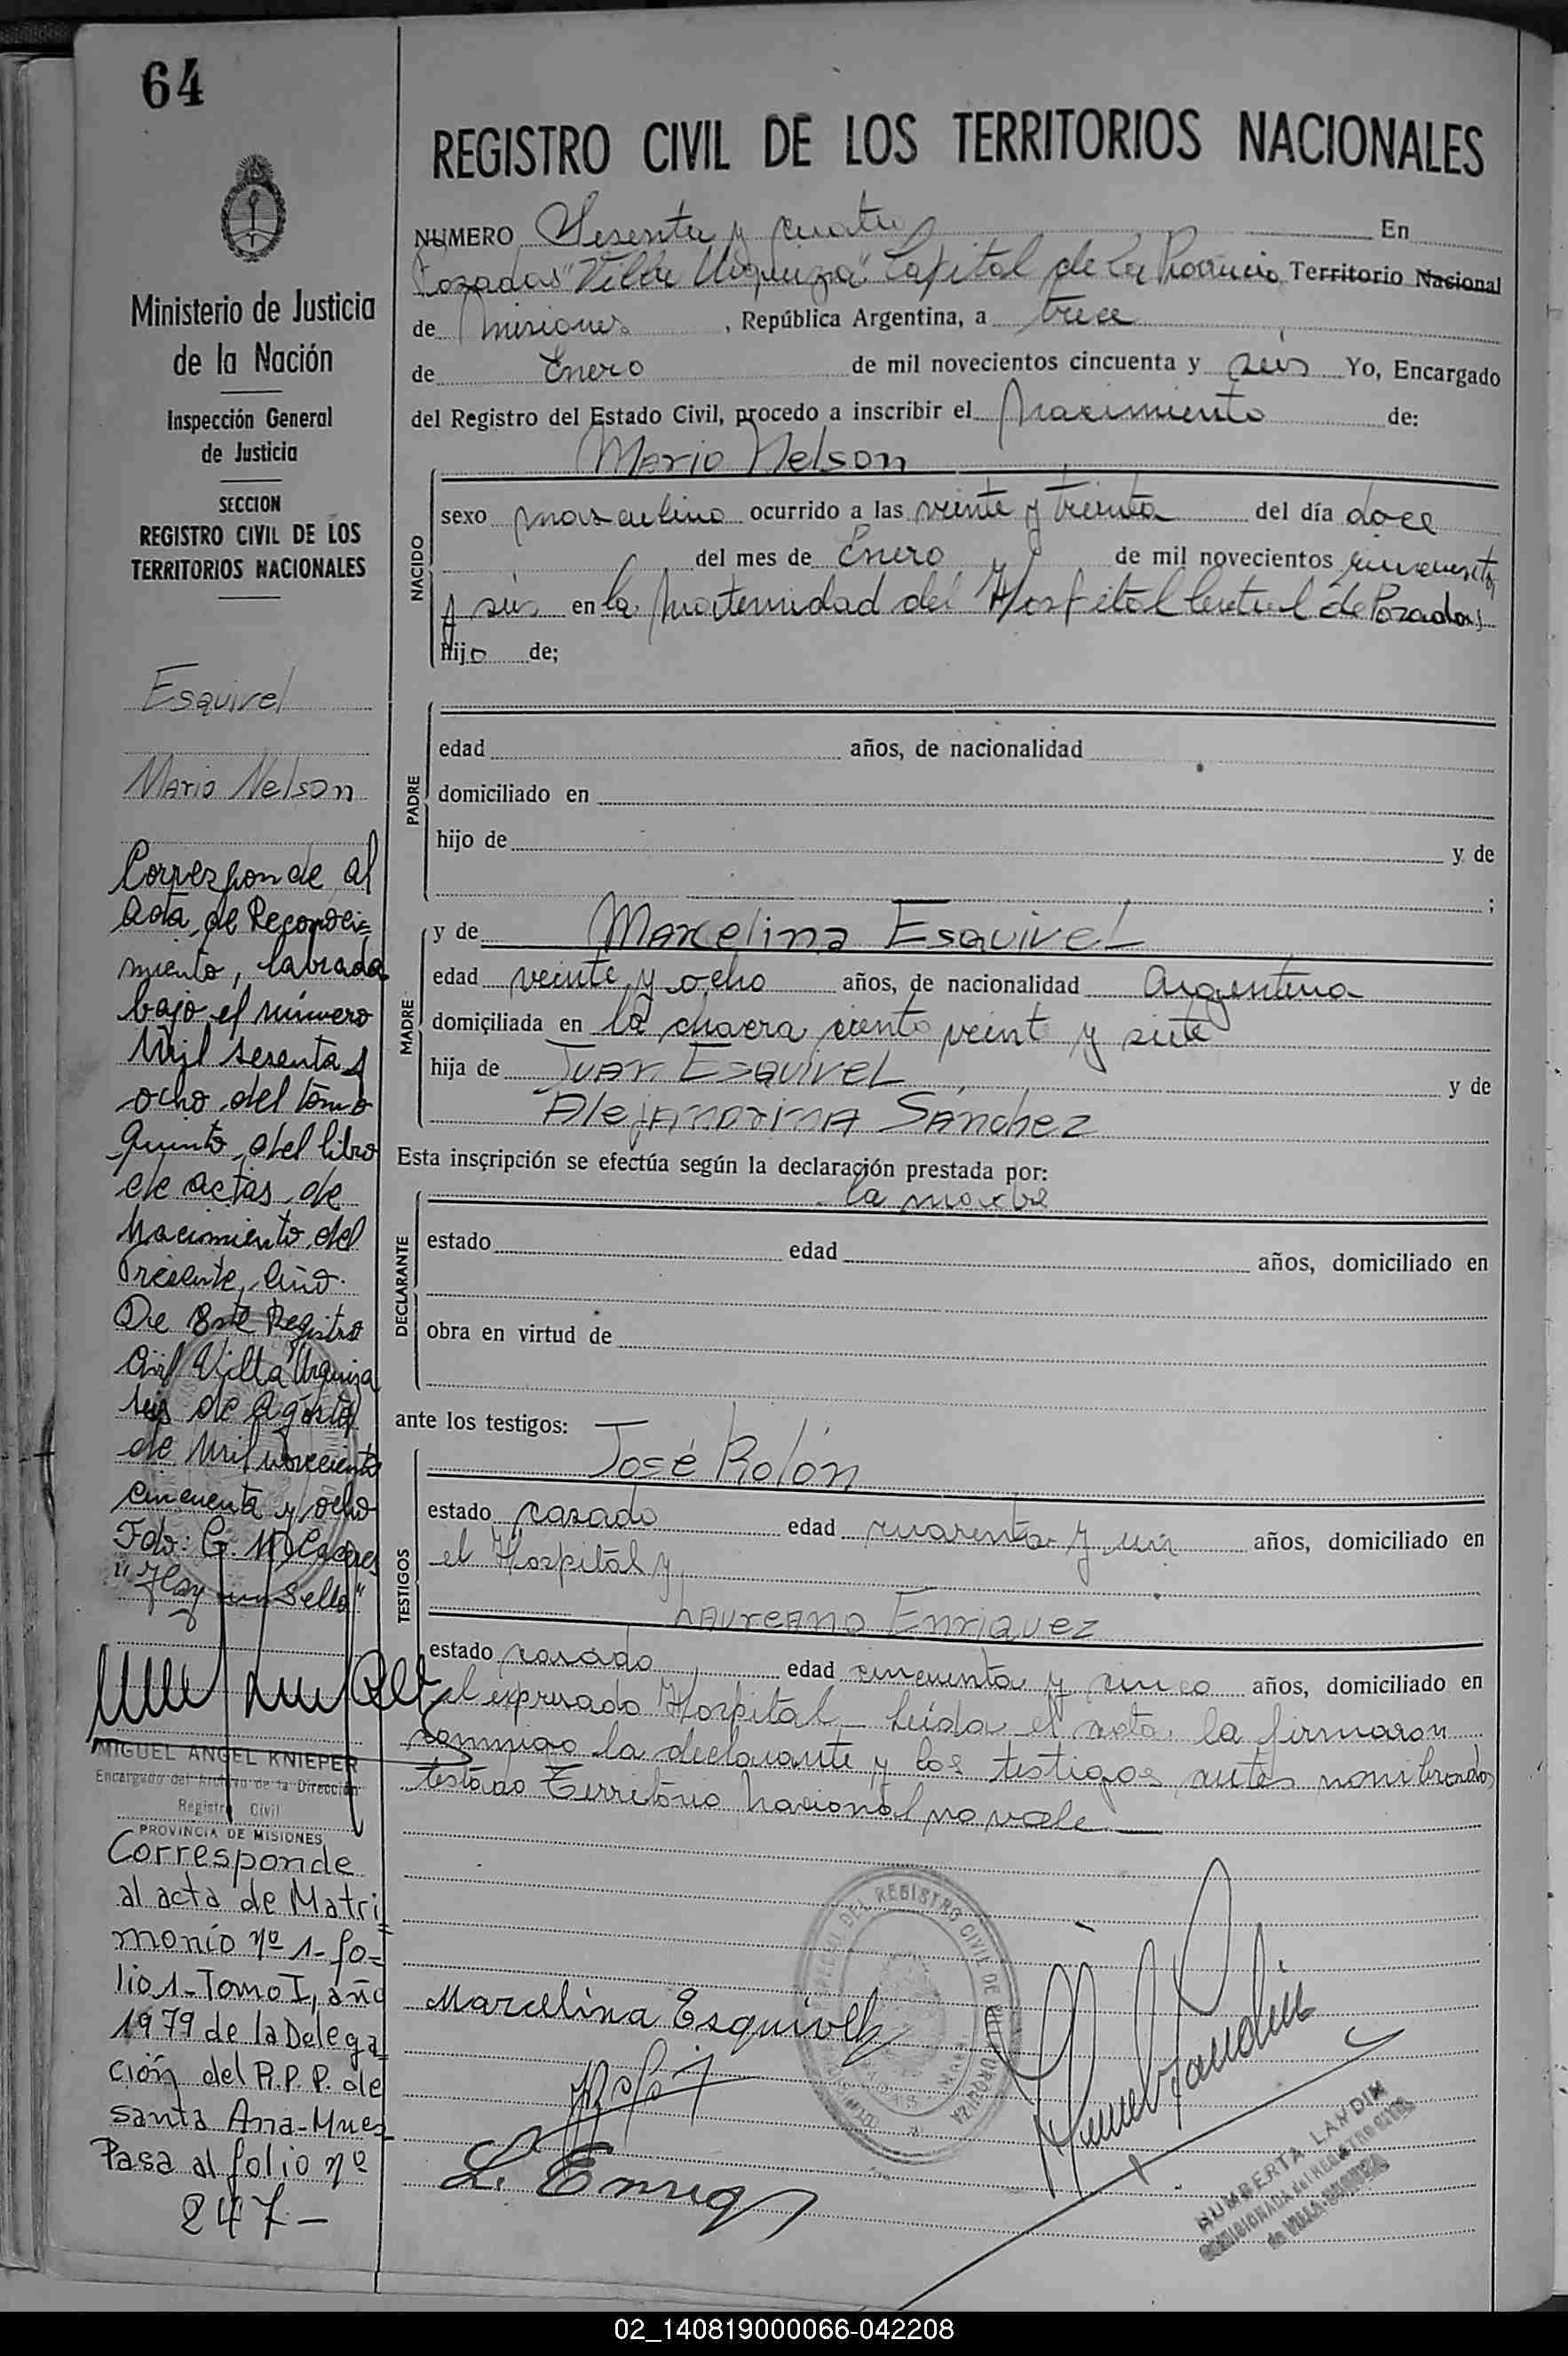 64
REGISTRO CIVIL DE LOS TERRITORIOS NACIONALES
NUMERO Sesenta y cuatro En
Posadas "Villa Urquiza" Capital de la Provincia Territorio Nacional
de Misiones, República Argentina, a trece
de Enero de mil novecientos cincuenta y seis Yo, Encargado
del Registro del Estado Civil, procedo a inscribir el Nacimiento de:
Mario Nelson
NACIDO
sexo masculino ocurrido a las veinte y treinta del día doce
del mes de Enero de mil novecientos cincuenta
y seis en la Maternidad del Hospital Central de Posadas
hijo de;
PADRE
edad años, de nacionalidad
domiciliado en
hijo de y de
;
MADRE
y de Marcelina Esquivel
edad veinte y ocho años, de nacionalidad Argentina
domiciliada en la chacra ciento veinte y siete
hija de Juan Esquivel y de
Alejandrina Sánchez
Esta inscripción se efectúa según la declaración prestada por:
la madre
DECLARANTE
estado edad años, domiciliado en
obra en virtud de
ante los testigos:
José Rolón
TESTIGOS
estado casado edad cuarenta y un años, domiciliado en
el Hospital y
Laureano Enriquez
estado casado edad cincuenta y cinco años, domiciliado en
el expresado Hospital Leída el acta la firmaron
conmigo la declarante y los testigos antes nombrados
testado Territorio Nacional no vale
Marcelina Esquivel
L. Enriq
REGISTRO CIVIL DE VILLA URQUIZA
HUMBERTA LANDIN
COMISIONADA del REGISTRO CIVIL
de VILLA URQUIZA
Ministerio de Justicia
de la Nación
Inspección General
de Justicia
SECCION
REGISTRO CIVIL DE LOS
TERRITORIOS NACIONALES
Esquivel
Mario Nelson
Corresponde al
Acta de Reconoci=
miento, labrada
bajo el número
Mil sesenta y
ocho del tomo
quinto del libro
de actas de
Nacimiento del
Presente año.
De Este Registro
Civil Villa Urquiza
seis de Agosto
de Mil novecientos
cincuenta y ocho
Fdo: G. M. Caceres
"Hay un Sello"
MIGUEL ANGEL KNIEPER
Encargado del Archivo de la Dirección
Registro Civil
PROVINCIA DE MISIONES
Corresponde
al acta de Matri=
monio nº 1- fo=
lio 1- Tomo I, año
1979 de la Delega=
ción del R.P.P. de
Santa Ana-Mnes-
Pasa al folio nº
247-
02_140819000066-042208